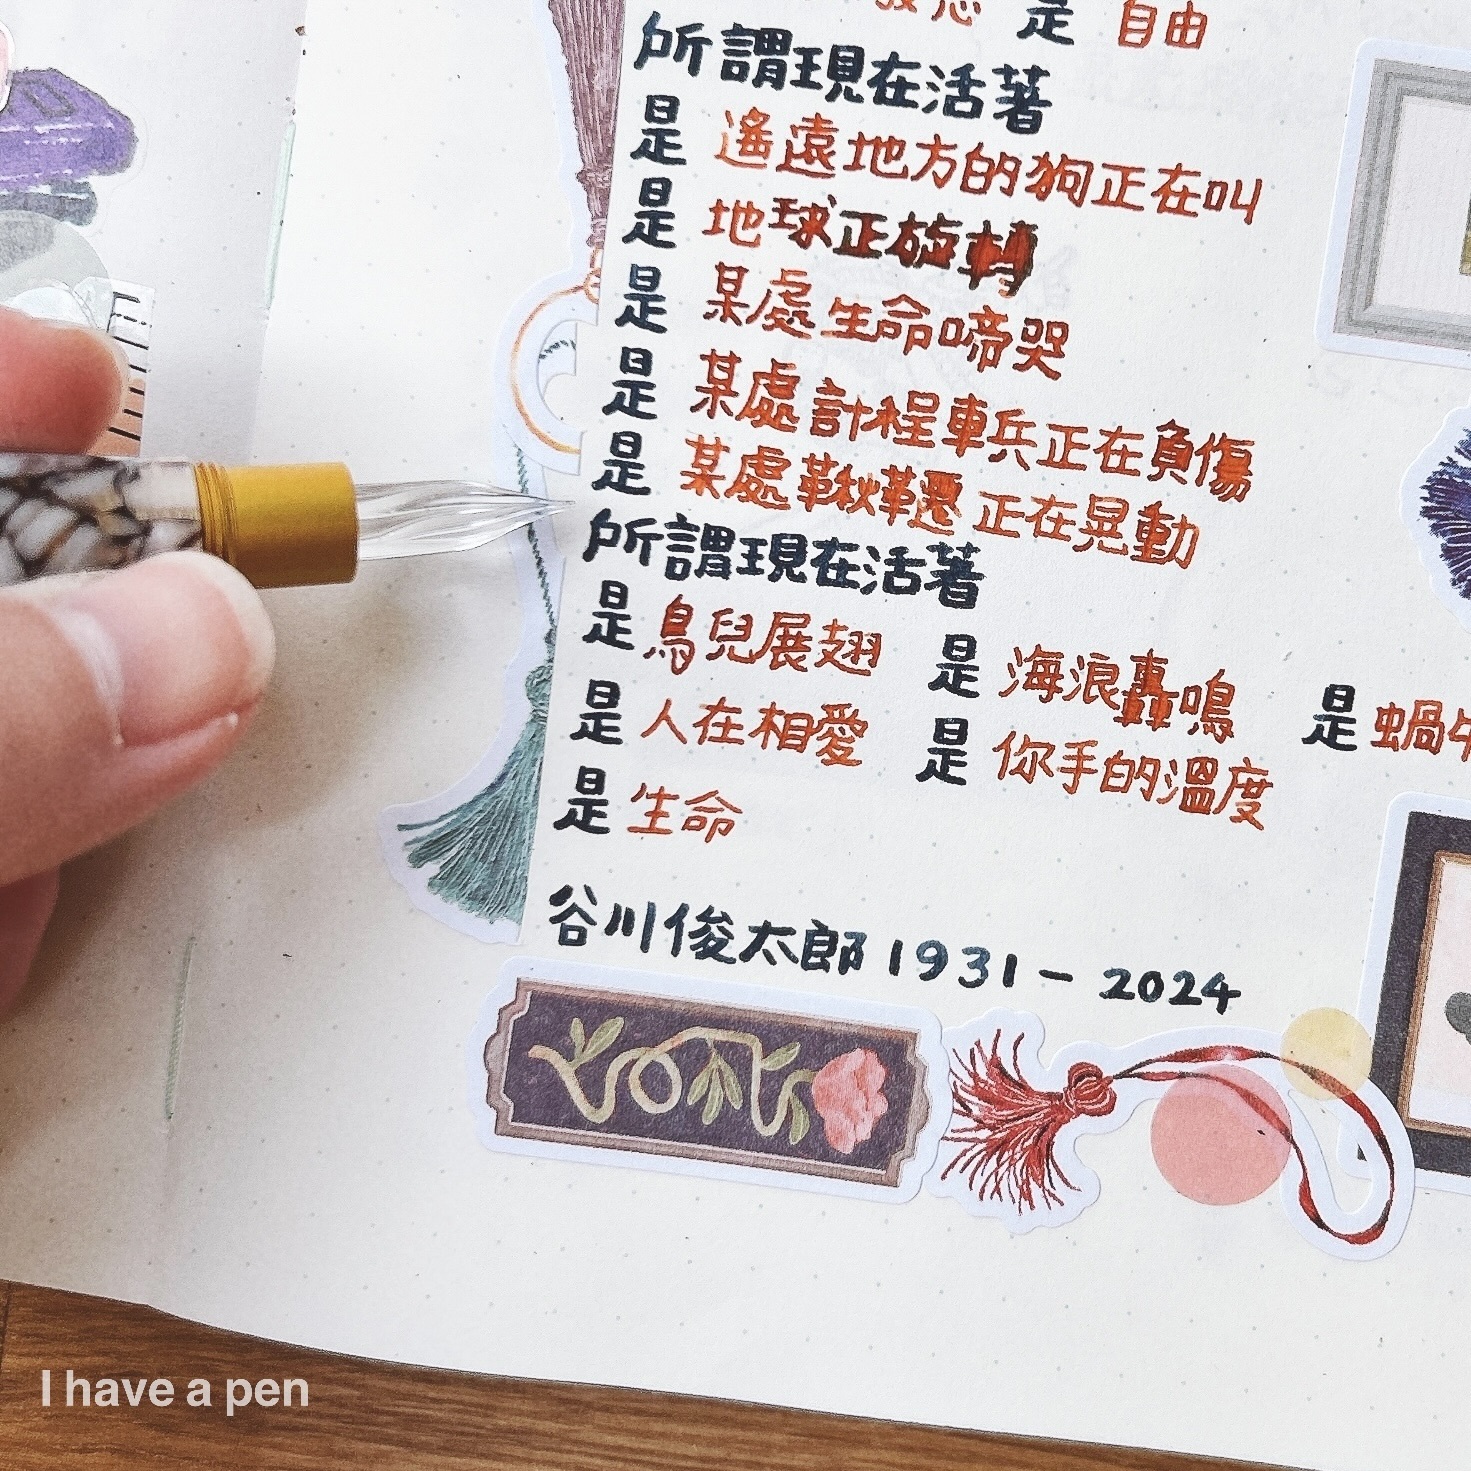 是 自由
所謂現在活著
是 遙遠地方的狗正在叫
是 地球正旋轉
是 某處生命啼哭
是 某處計程車兵正在負傷
是 某處鞦韆正在晃動
所謂現在活著
是 鳥兒展翅 是 海浪轟鳴 是 蝸牛
是 人在相愛 是 你手的溫度
是 生命
谷川俊太郎 1931 - 2024
I have a pen